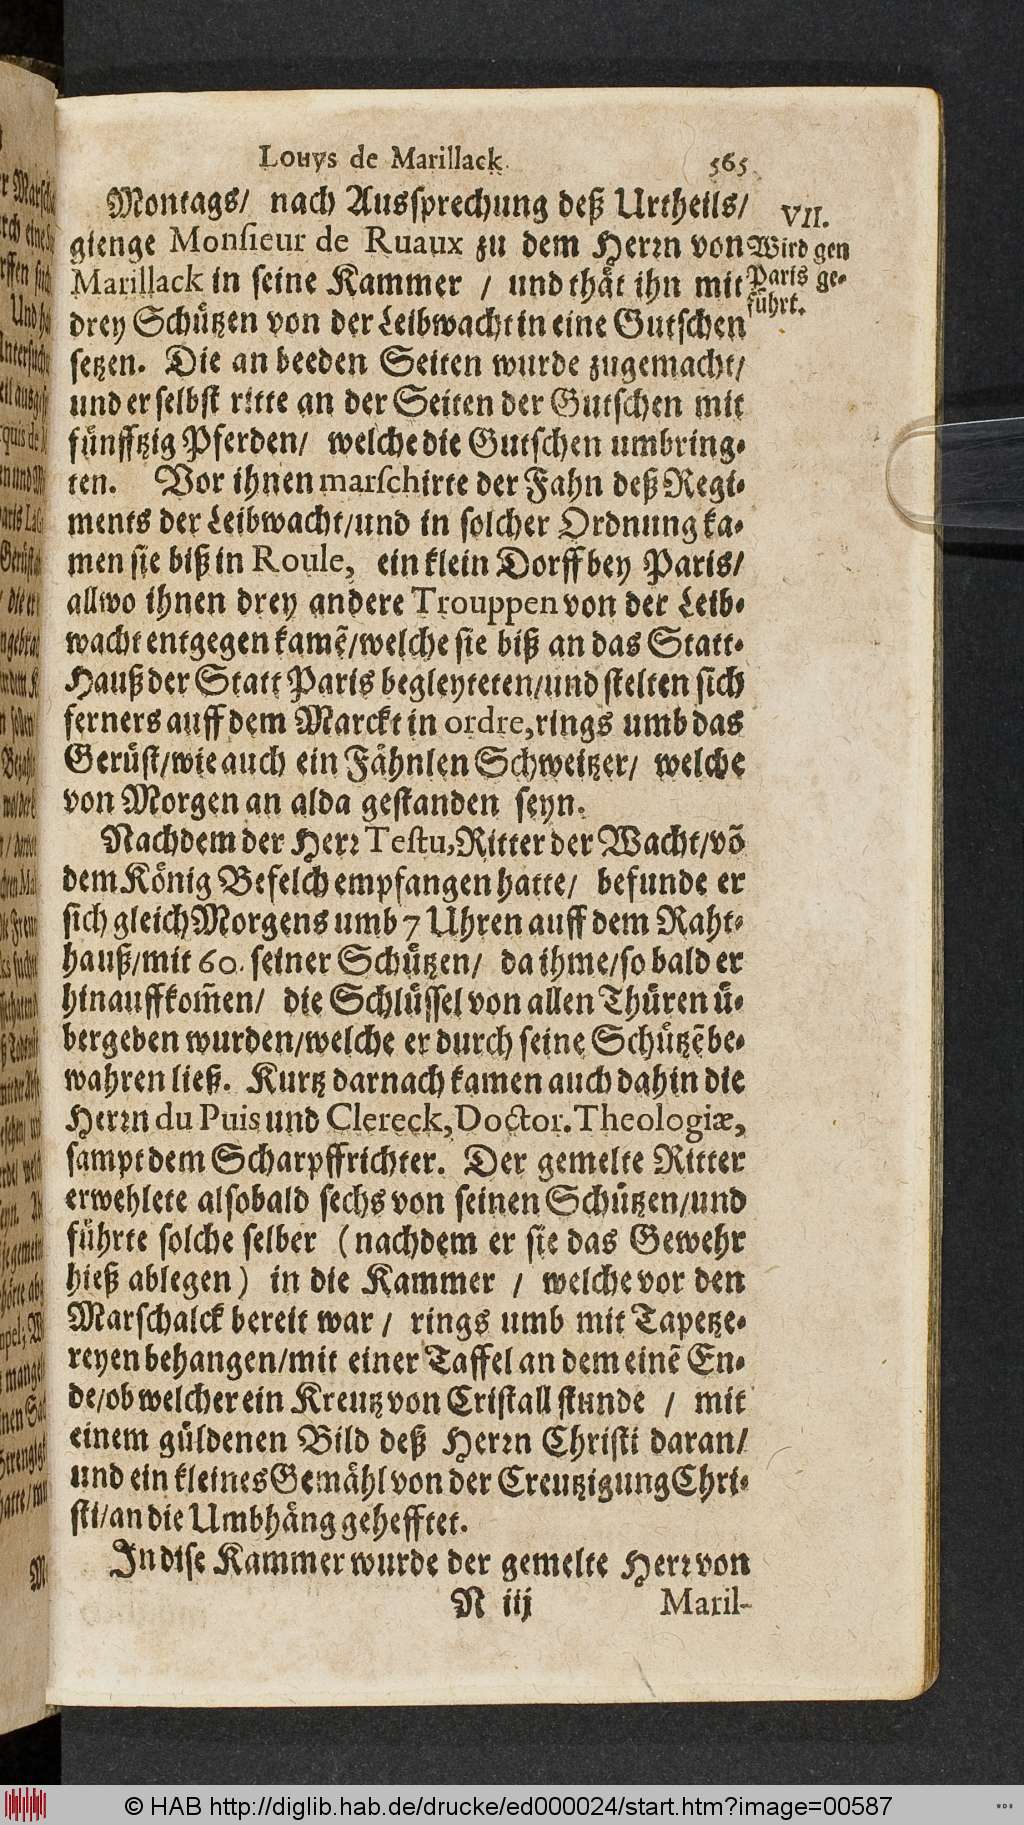 Louys de Marillack. 565
Montags/ nach Aussprechung deß Urtheils/
gienge Monsieur de Ruaux zu dem Herrn von
Marillack in seine Kammer / und thät ihn mit
drey Schützen von der Leibwacht in eine Gutschen
setzen. Die an beeden Seiten wurde zugemacht/
und er selbst ritte an der Seiten der Gutschen mit
fünfftzig Pferden/ welche die Gutschen umbring-
ten. Vor ihnen marschirte der Fahn deß Regi-
ments der Leibwacht/und in solcher Ordnung ka-
men sie biß in Roule, ein klein Dorff bey Paris/
allwo ihnen drey andere Trouppen von der Leib-
wacht entgegen kamẽ/welche sie biß an das Statt-
Hauß der Statt Paris begleyteten/und stelten sich
ferners auff dem Marckt in ordre, rings umb das
Gerüst/wie auch ein Fähnlen Schweitzer/ welche
von Morgen an alda gestanden seyn.
Nachdem der Herr Testu, Ritter der Wacht/võ
dem König Befelch empfangen hatte/ befunde er
sich gleich Morgens umb 7 Uhren auff dem Raht-
hauß/mit 60. seiner Schützen/ da ihme/so bald er
hinauffkom̃en/ die Schlüssel von allen Thüren ü-
bergeben wurden/welche er durch seine Schützẽ be-
wahren ließ. Kurtz darnach kamen auch dahin die
Herrn du Puis und Clereck, Doctor. Theologiæ,
sampt dem Scharpffrichter. Der gemelte Ritter
erwehlete alsobald sechs von seinen Schützen/und
führte solche selber (nachdem er sie das Gewehr
hieß ablegen) in die Kammer / welche vor den
Marschalck bereit war/ rings umb mit Tapetze-
reyen behangen/mit einer Taffel an dem einẽ En-
de/ob welcher ein Kreutz von Cristall stunde / mit
einem güldenen Bild deß Herrn Christi daran/
und ein kleines Gemähl von der Creutzigung Chri-
sti/an die Umbhäng gehefftet.
In dise Kammer wurde der gemelte Herr von
N iij Maril-
VII.
Wird gen
Paris ge-
führt.
© HAB http://diglib.hab.de/drucke/ed000024/start.htm?image=00587